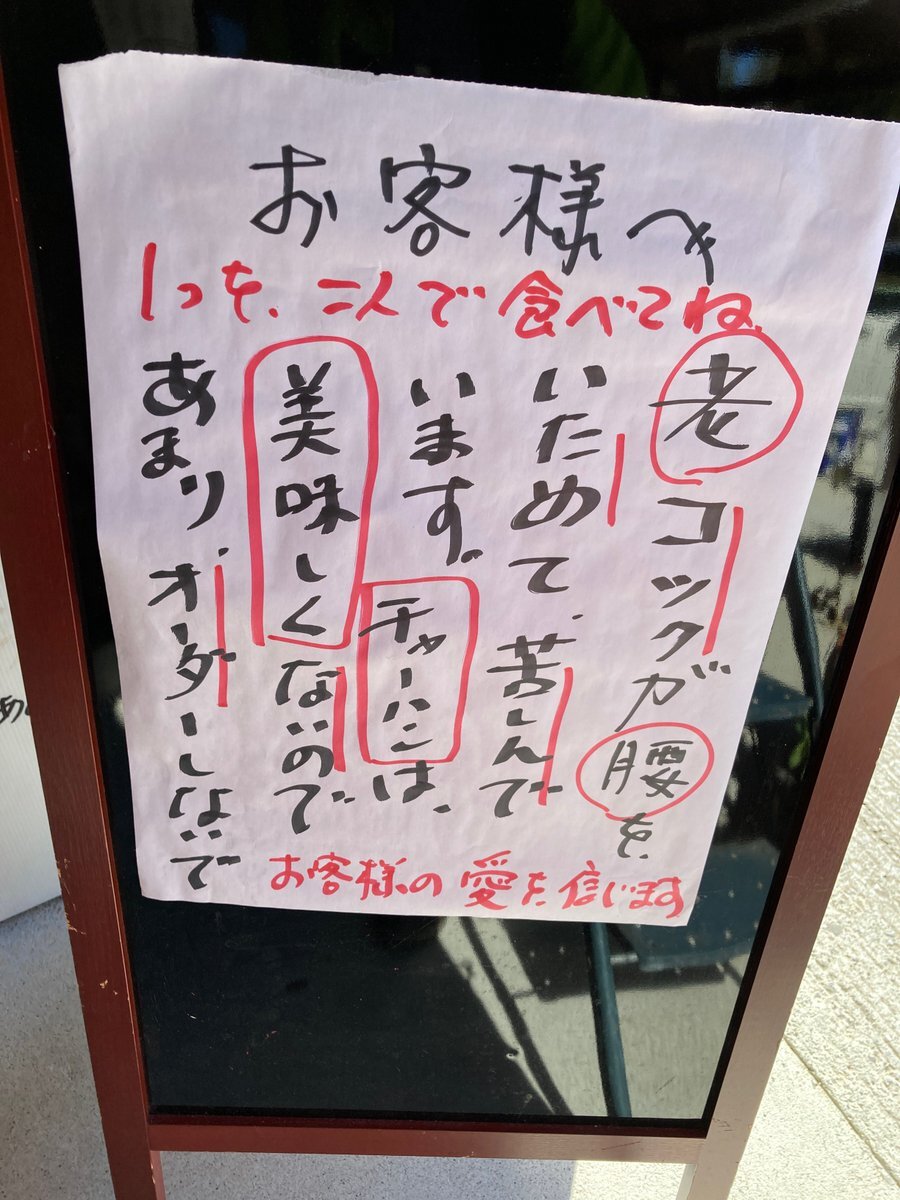 お客様へ
1つを、二人で食べてね、
老コックが腰を、
いためて、苦しんで
います。チャーハンは、
美味しくないので
あまりオーダーしないで
お客様の愛を信じます